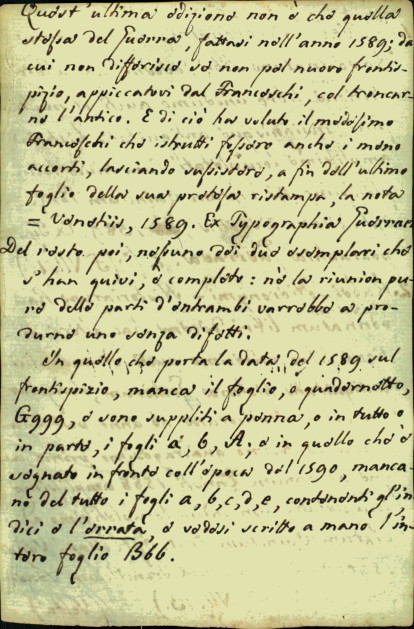 Quest' ultima edizione non è che quella
stessa del Guerra, fattasi nell'anno 1589; da
cui non differisce se non pel nuovo frontis-
pizio, appiccatovi dal Franceschi, col troncar-
ne l'antico. E di ciò ha voluto il medesimo
Franceschi che istrutti fossero anche i meno
accorti, lasciando sussistere, a fin dell'ultimo
foglio della sua pretesa ristampa, la nota
= Venetiis, 1589. Ex Typographia Guerræa
Del resto poi, nessuno dei due esemplari che
s'han quivi, è completo: nè la riunion pu-
re delle parti d'entrambi varrebbe a pro-
durne uno senza difetti.
In quello che porta la data del 1589 sul
frontispizio, manca il foglio, o quadernetto,
Gggg, e sono suppliti a penna, o in tutto o
in parte, i fogli a, b, A, e in quello ch'è
segnato in fronte coll'epoca del 1590, manca-
no del tutto i fogli a, b, c, d, e, contenenti gl'in-
dici e l'errata, e vedesi scritto a mano l'in-
tero foglio Bbb.